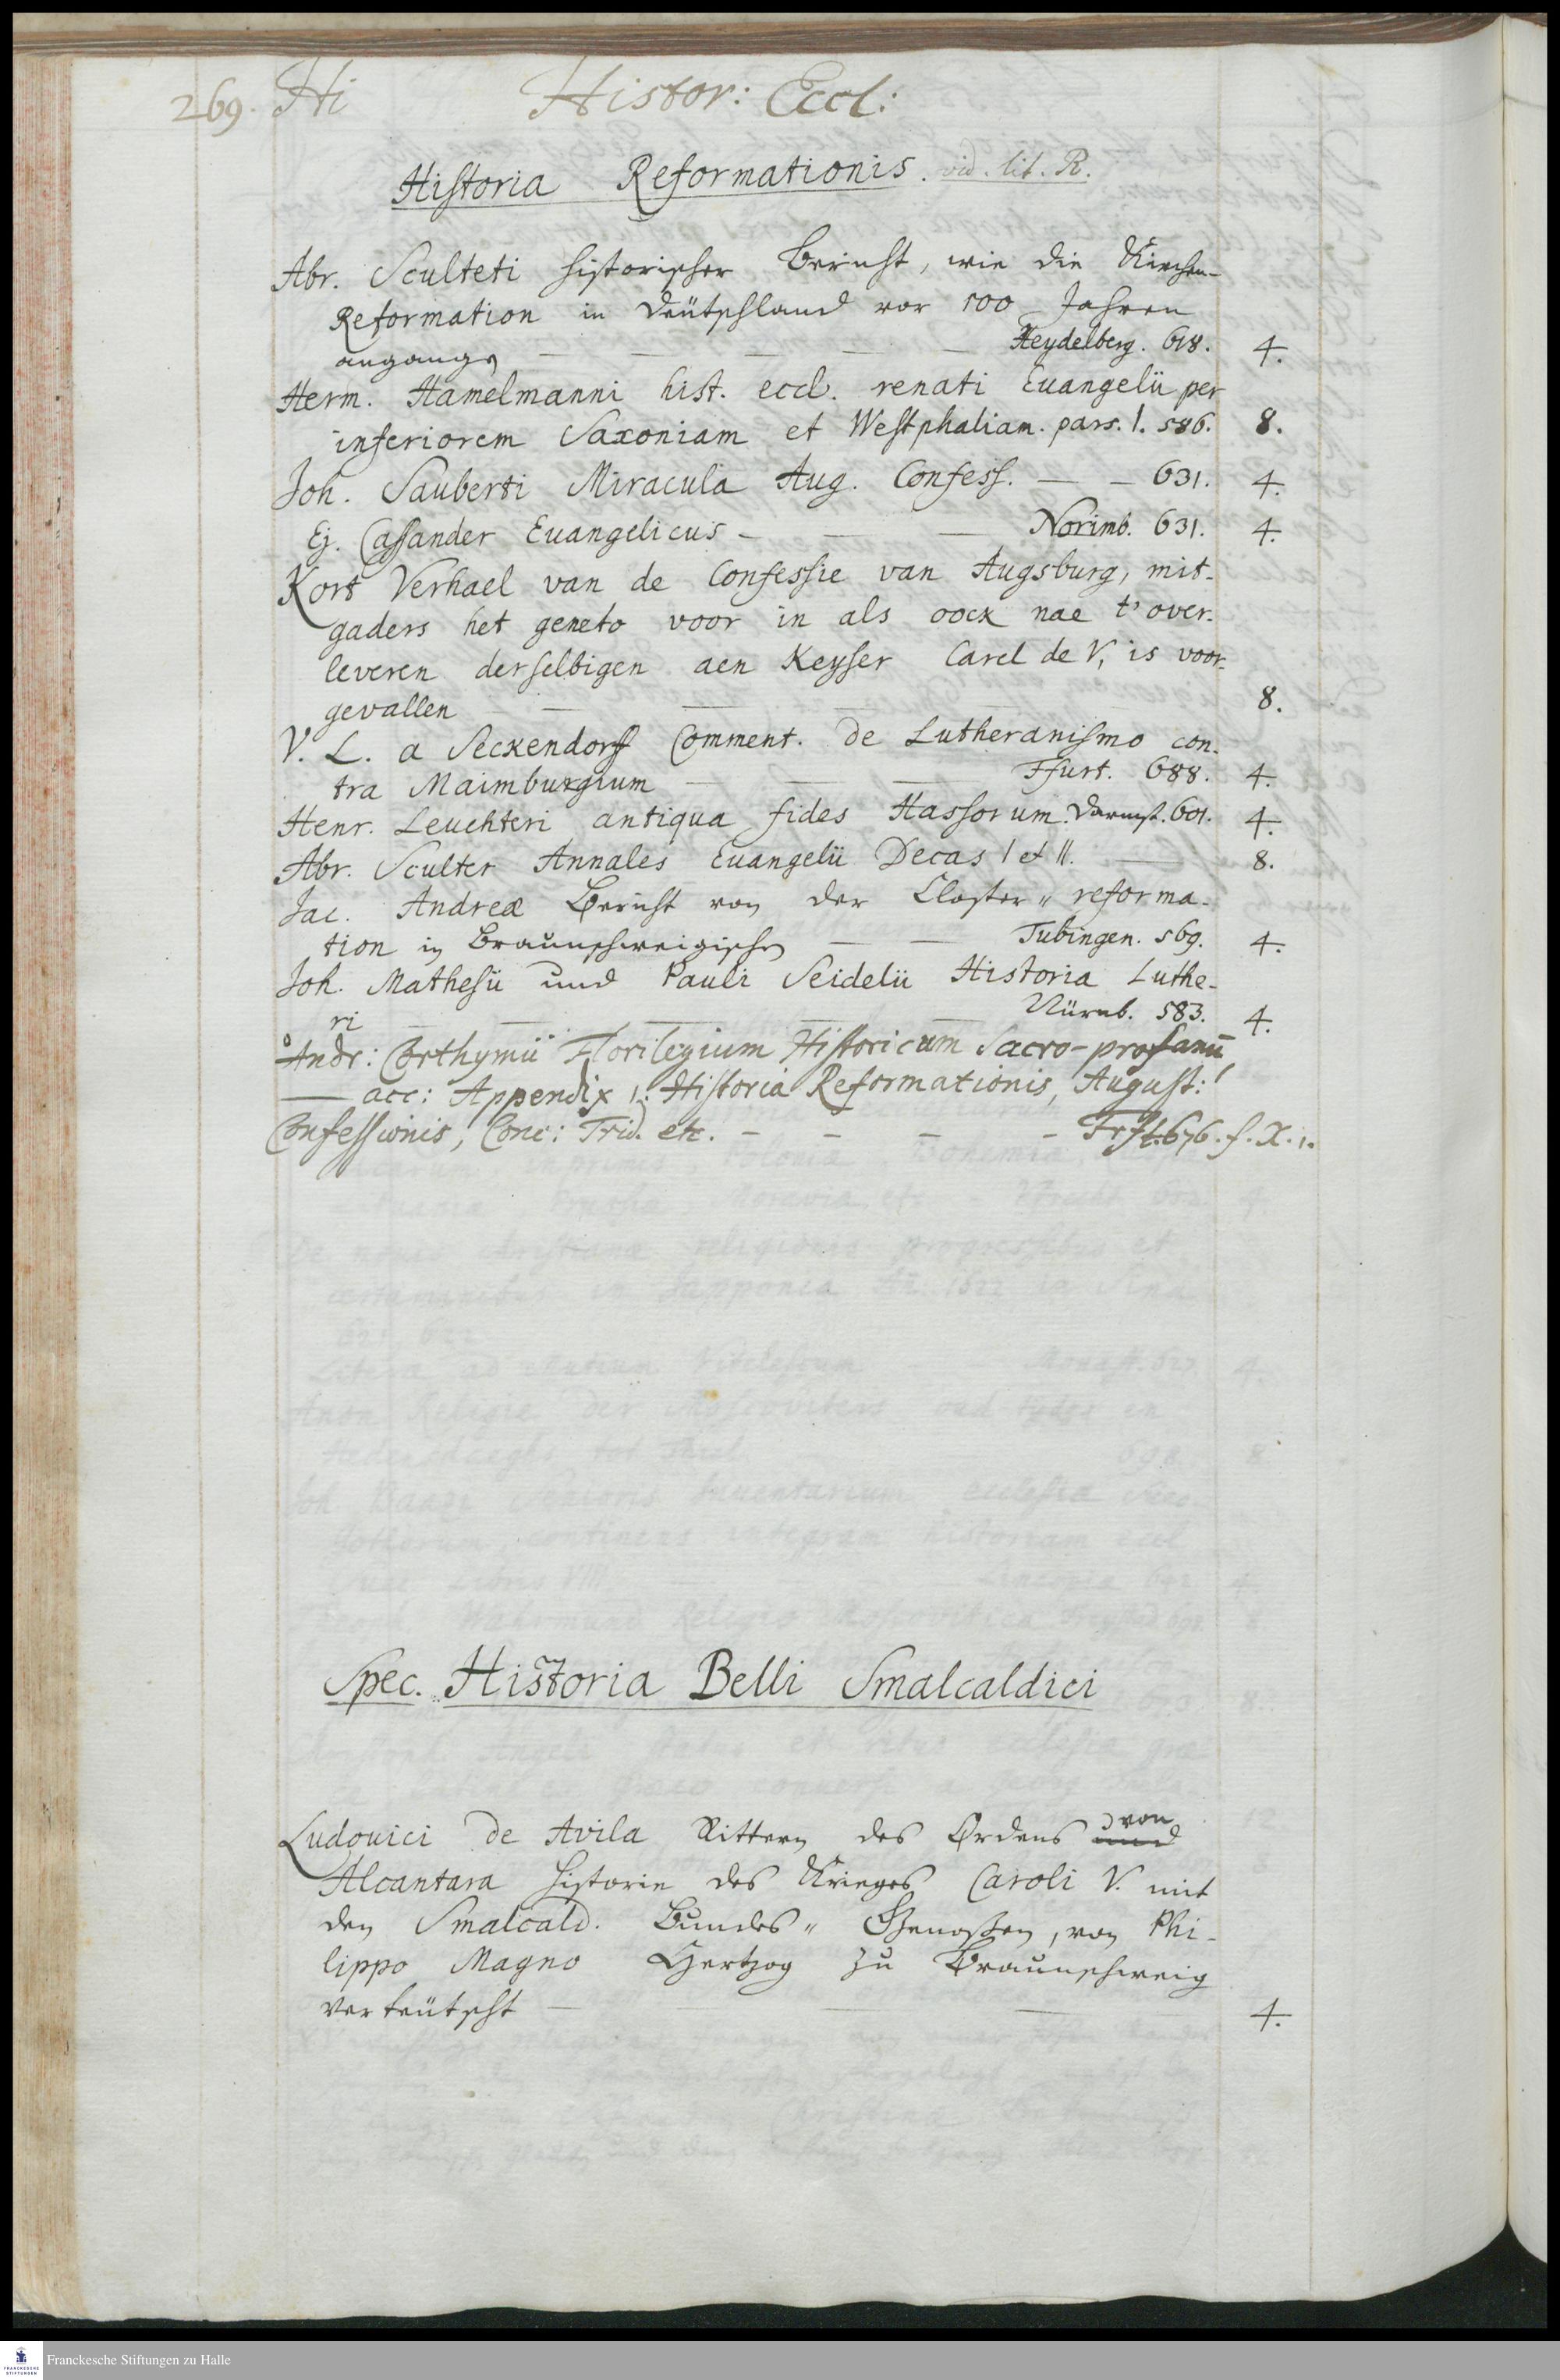 269. Hi Histor: Eccl:
Historia Reformationis. vid. lit. R.
Abr. Sculteti historischer Bericht, wie die Kirchen-
Reformation in Deütschland vor 100 Jahren
angangen — — — — — Heydelberg. 618. 4.
Herm. Hamelmanni hist. eccl. renati Euangelii per
inferiorem Saxoniam et Westphaliam. pars. I. 586. 8.
Joh. Sauberti Miracula Aug. Confess. — — 631. 4.
Ej. Cassander Euangelicus — — — Norimb. 631. 4.
Kort Verhael van de Confessie van Augsburg, mit-
gaders het geneto voor in als oock nae t' over-
leveren derselbigen aen Keyser Carel de V, is voor-
gevallen — — — — 8.
V. L. a Seckendorff Comment. de Lutheranismo con-
tra Maimburgium — — — Ffurt. 688. 4.
Henr. Leuchteri antiqua fides Hassorum. Darmst. 601. 4.
Abr. Sculter Annales Euangelii Decas I et II. — 8.
Jac. Andreæ Bericht von der Closter- reforma-
tion in Braunschweigischen — — Tubingen. 569. 4.
Joh. Mathesii und Pauli Seidelii Historia Luthe-
ri — — — — — Nürnb. 583. 4.
Andr: Corthymii Florilegium Historicum Sacro-profanū
— acc: Appendix 1. Historia Reformationis, August:
Confessionis, Conc: Trid. etc. - - - - Frft. 676. f. X. 1.
Spec. Historia Belli Smalcaldici
Ludouici de Avila Rittern des Ordens und von
Alcantara Historie des Krieges Caroli V. mit
den Smalcald. Bundes- Genossen, von Phi-
lippo Magno Hertzog zu Braunschweig
verteütscht — — — 4.
Franckesche Stiftungen zu Halle